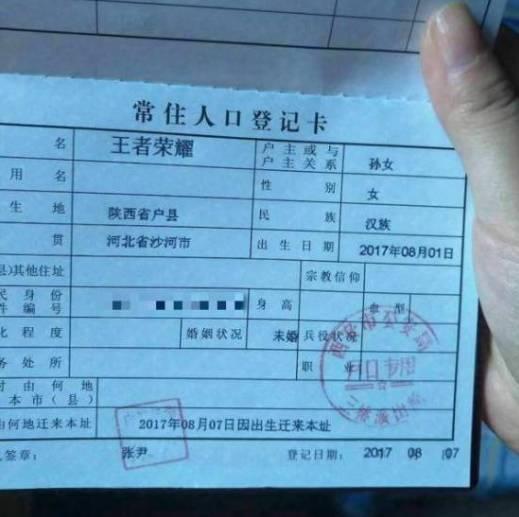 常住人口登记卡
名 王者荣耀 户主或与户主关系 孙女
用名 性别 女
生地 陕西省户县 民族 汉族
贯 河北省沙河市 出生日期 2017年08月01日
县)其他住址 宗教信仰
民身份
件编号 身高 血型
化程度 婚姻状况 未婚 兵役状况
务处所 职业
时由何地
本市(县)
何地迁来本址 2017年08月07日因出生迁来本址
签章: 张尹 登记日期: 2017 08 07
西安市公安局
户口专用